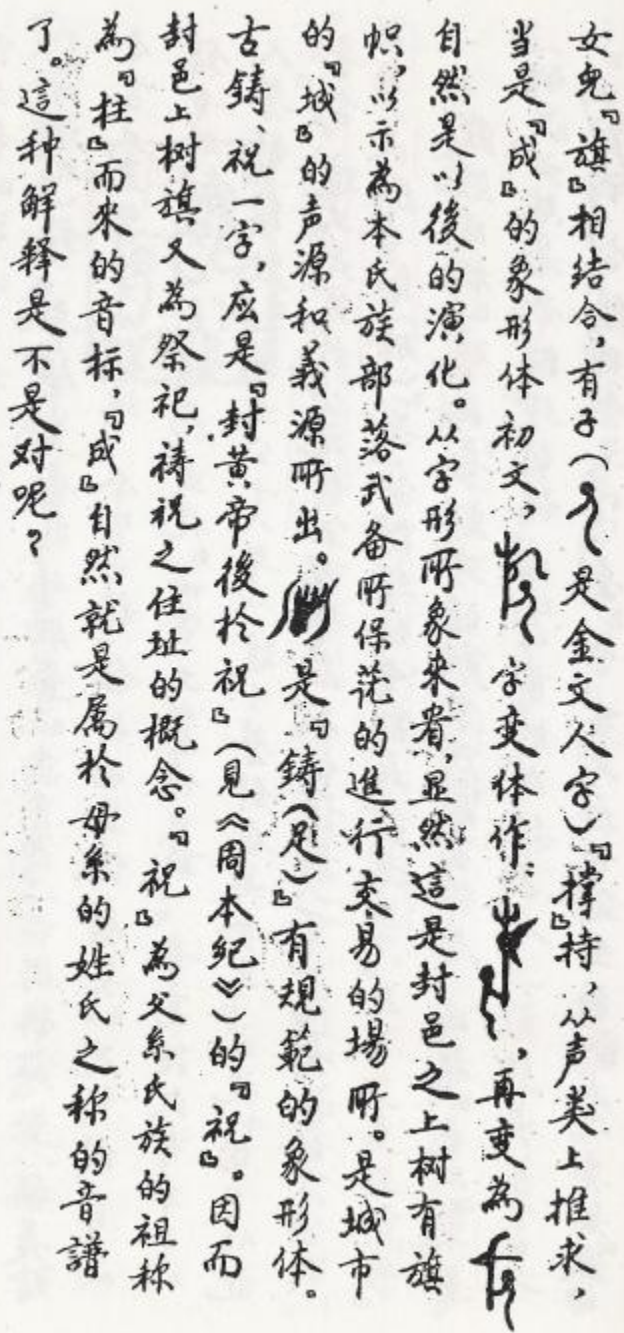 女兒『旗』相结合,有子(是金文人字)『撑』持,从声类上推求,
当是『成』的象形体初文,字变体作:,再变為
自然是以後的演化。从字形所象来看,显然這是封邑之上树有旗
帜,以示為本氏族部落武备所保護的進行交易的場所。是城市
的『城』的声源和義源所出。是『鋳(足)』有規範的象形体。
古鋳、祝一字,应是『封黄帝後於祝』(見《周本纪》)的『祝』。因而
封邑上树旗又為祭祀,祷祝之住址的概念。『祝』為父系氏族的祖称
為『柱』而來的音标,『成』自然就是属於母系的姓氏之称的音譜
了。這种解釋是不是对呢?